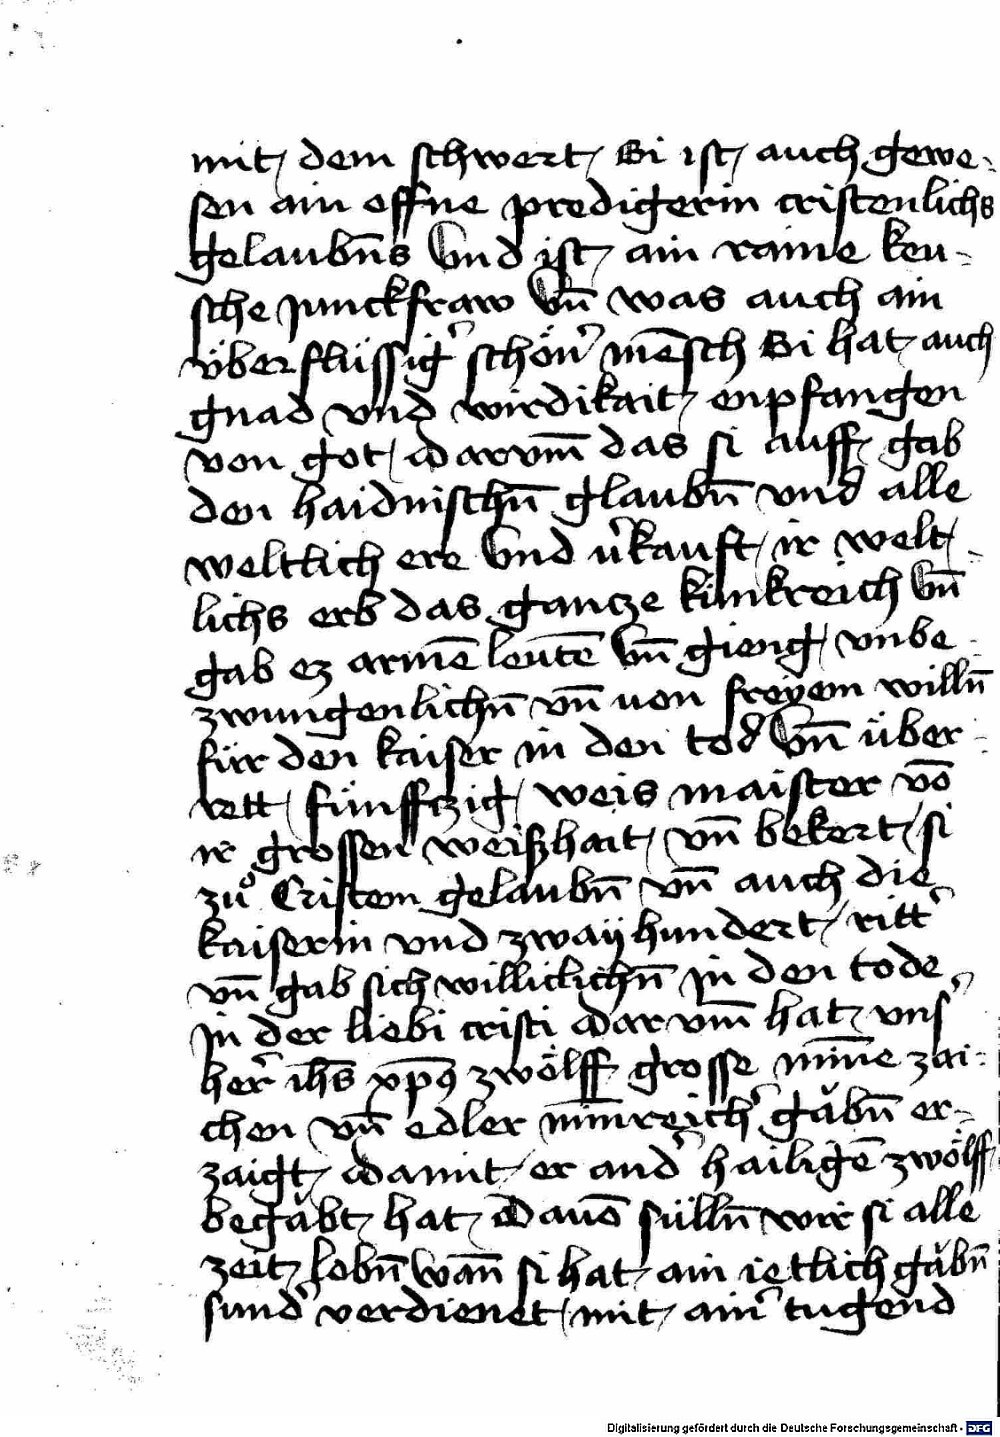 mit dem schwert / Si ist auch gewe-
sen ain offne predigerin cristenlichs
gelaubn̄s Vnd ist ain raine keu-
sche junckfraw Vn̄ was auch ain
überflüssig' schön' mēsch Si hat auch
gnad vnd wirdikait enpfangen
von got / Darvm̄ das si auff gab
den haidnischn̄ glaubn̄ vnd alle
weltlich ere Vnd v'kauft / ir welt-
lichs erb das gancze künkreich Vn̄
gab ez armē leutē Vn̄ gieng / vnbe-
zwungenlichn̄ vn̄ uon freyem willn̄
für den kaiser in den tod Vn̄ über-
rett / fünffczig / weis maister vō
ir grossen weißhait / vn̄ bekert / si
zů Cristem gelaubn̄ vn̄ auch die
kaiserin vnd zwaÿ hundert / ritt'
vn̄ gab sich williclichn̄ in den tode
in der liebi cristi Darvm̄ hat vns'
her' ih̄s xp̄s zwölff grosse min̄e zai-
chen vn̄ edler min̄reich' gäbn̄ er-
zaigt / Damit er and' hailigē zwölff
begäbt hat / Dauō sülln̄ wir si alle
zeit lobn̄ Wan̄ si hat ain ietlich gäbn̄
sund' verdienet / mit ain' tugend
Digitalisierung gefördert durch die Deutsche Forschungsgemeinschaft - DFG